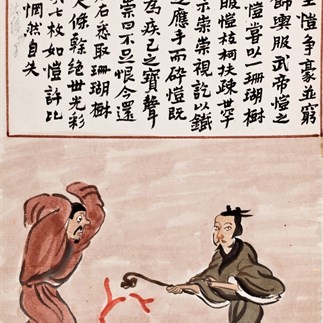 愷爭豪並窮
飾輿服武帝愷之
愷嘗以一珊瑚樹
賜愷枝柯扶疎世罕
示崇崇視訖以鐵
之應手而碎愷既
為疾己之寶聲
崇曰不足恨今還
右悉取珊瑚樹
尺條榦絕世光彩
七枚如愷許比
惘然自失